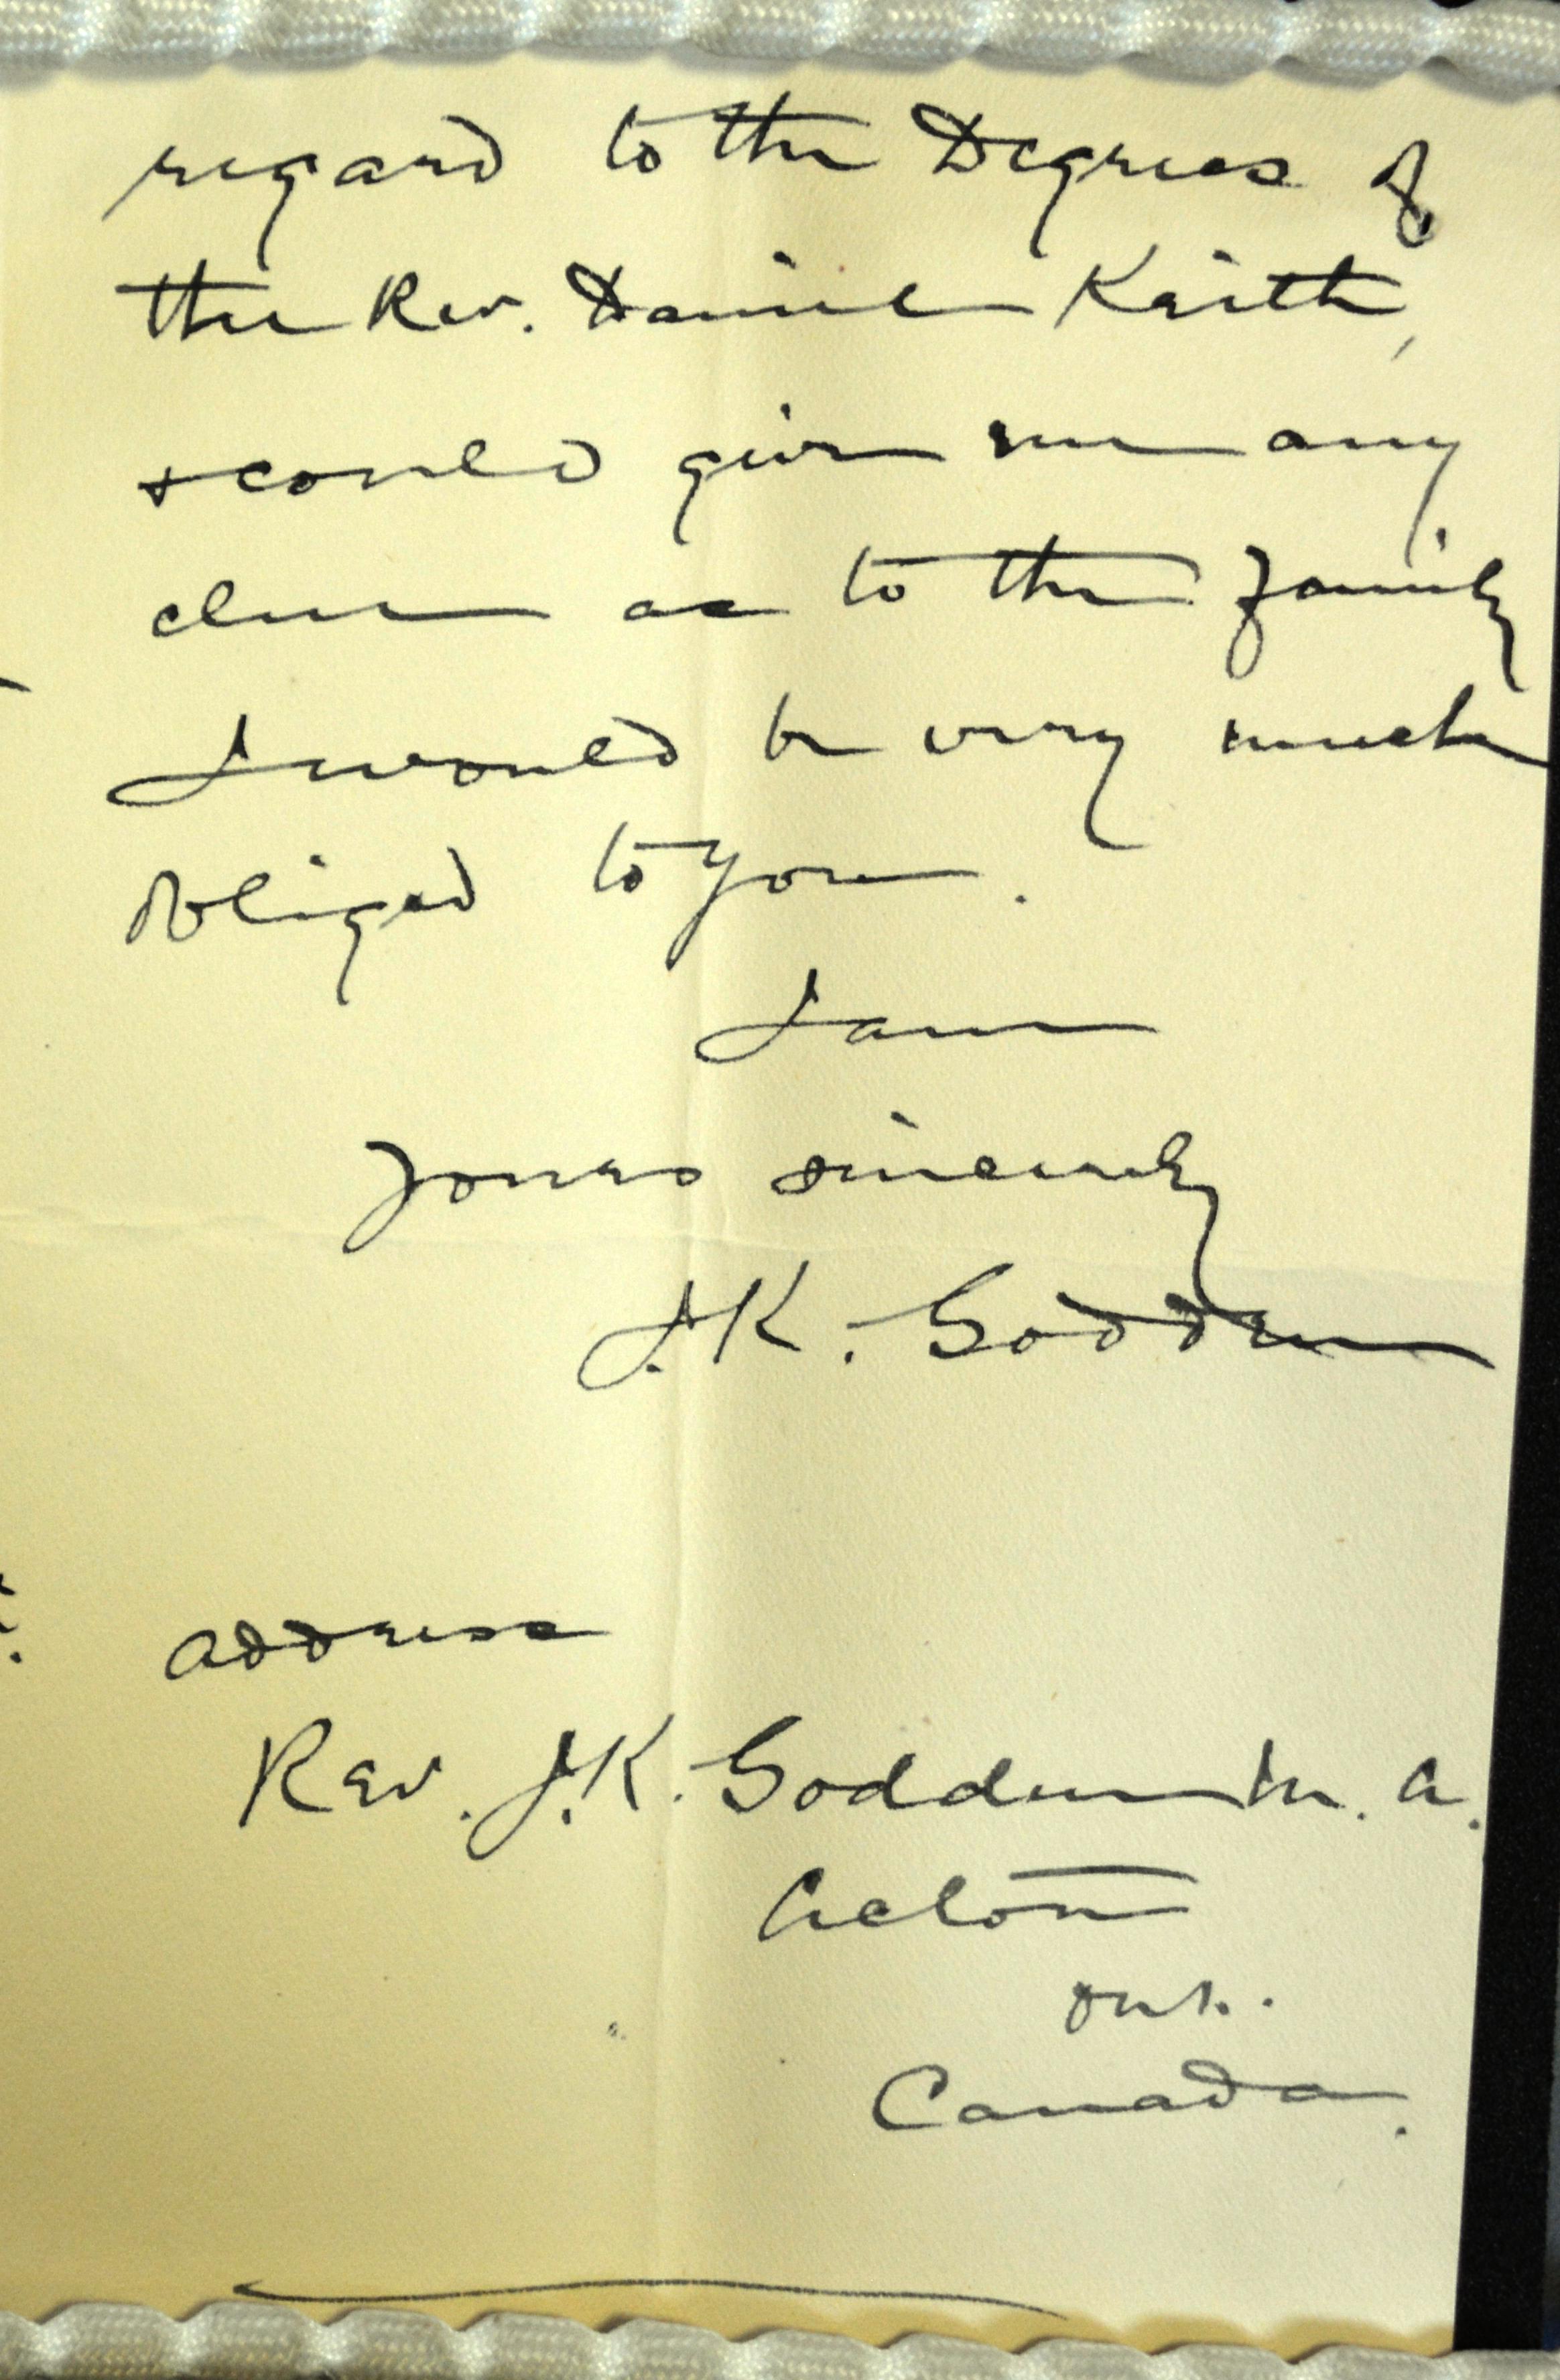 regard to the Degrees of
the Rev. Daniel Keith,
& could give me any
clue as to the family
I would be very much
obliged to you.
I am
Yours sincerely
J.K. Godden
address
Rev. J.K. Godden M. A.
Acton
Ont.
Canada.